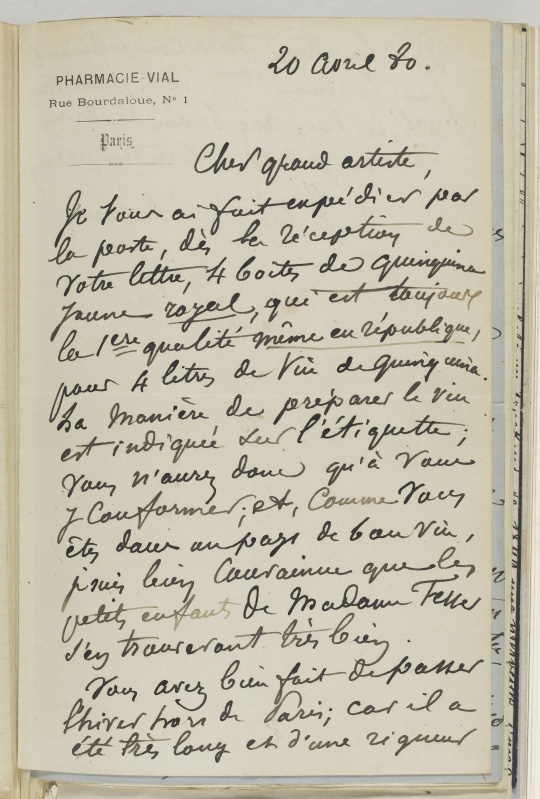 20 avril 80.
PHARMACIE-VIAL
Rue Bourdaloue, Nº 1
Paris
Cher grand artiste,
Je vous ai fait expédier par
la poste, dès la réception de
votre lettre, 4 boîtes de quinquina
jaune royal, qui est toujours
la 1ère qualité même en république,
pour 4 litres de vin de quinquina.
La manière de préparer le vin
est indiquée sur l'étiquette;
vous n'aurez donc qu'à vous
y conformer; et, comme vous
êtes dans un pays de bon vin,
je suis bien convaincu que les
petits enfants de Madame
s'en trouveront très bien.
Vous avez bien fait de passer
l'hiver hors de Paris; car il a
été très long et d'une rigueur